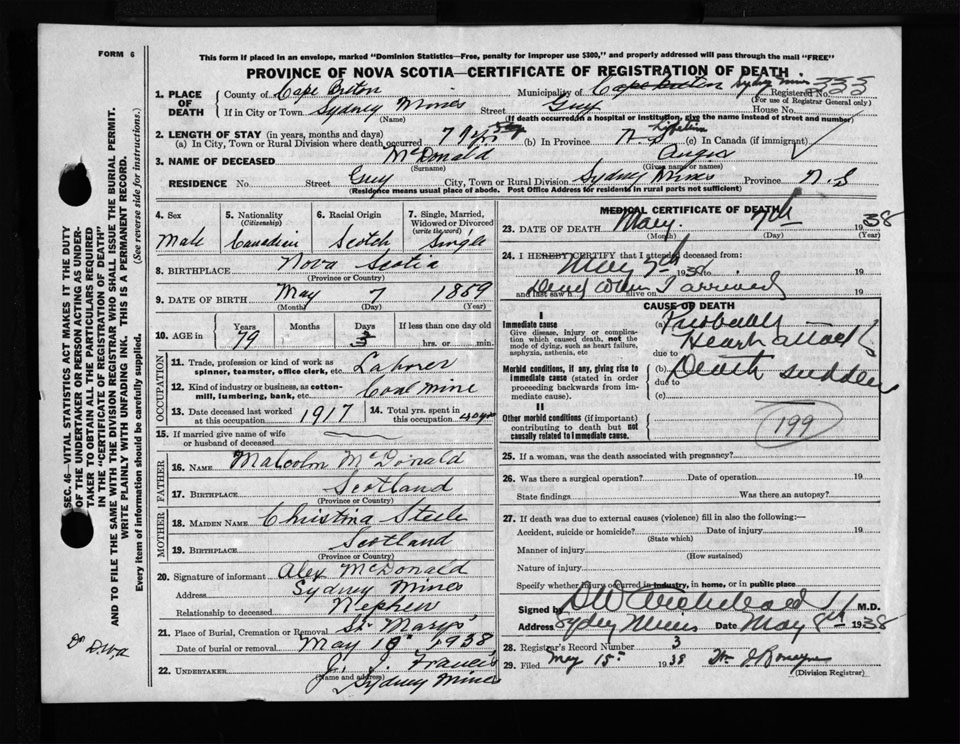 FORM 6
This form if placed in an envelope, marked "Dominion Statistics—Free, penalty for improper use $300," and properly addressed will pass through the mail "FREE"
PROVINCE OF NOVA SCOTIA—CERTIFICATE OF REGISTRATION OF DEATH
SEC. 46—VITAL STATISTICS ACT MAKES IT THE DUTY
OF THE UNDERTAKER OR PERSON ACTING AS UNDER-
TAKER TO OBTAIN ALL THE PARTICULARS REQUIRED
IN THE "CERTIFICATE OF REGISTRATION OF DEATH"
AND TO FILE THE SAME WITH THE DIVISION REGISTRAR WHO SHALL ISSUE THE BURIAL PERMIT.
WRITE PLAINLY WITH UNFADING INK. THIS IS A PERMANENT RECORD.
Every item of information should be carefully supplied. (See reverse side for instructions.)
1. PLACE OF DEATH County of Cape Breton Municipality of Cape Breton Sydney Mines Registered No. 333
(For use of Registrar General only)
If in City or Town Sydney Mines Street Guy House No.
(Name) (If death occurred in a hospital or institution, give the name instead of street and number)
2. LENGTH OF STAY (in years, months and days)
(a) In City, Town or Rural Division where death occurred 79 yrs (b) In Province N.S. lifetime (c) In Canada (if immigrant)
3. NAME OF DECEASED McDonald Angus
(Surname) (Given name or names)
RESIDENCE No. Street Guy City, Town or Rural Division Sydney Mines Province N.S
(Residence means usual place of abode. Post Office Address for residents in rural parts not sufficient)
4. Sex Male
5. Nationality (Citizenship) Canadian
6. Racial Origin Scotch
7. Single, Married, Widowed or Divorced (write the word) Single
8. BIRTHPLACE Nova Scotia
(Province or Country)
9. DATE OF BIRTH May 7 1859
(Month) (Day) (Year)
10. AGE in Years 79 Months Days If less than one day old hrs. or min.
OCCUPATION
11. Trade, profession or kind of work as spinner, teamster, office clerk, etc. Laborer
12. Kind of industry or business, as cotton-mill, lumbering, bank, etc. Coal mine
13. Date deceased last worked at this occupation 1917
14. Total yrs. spent in this occupation 40 yrs
15. If married give name of wife or husband of deceased
FATHER
16. NAME Malcolm McDonald
17. BIRTHPLACE Scotland
(Province or Country)
MOTHER
18. MAIDEN NAME Christina Steele
19. BIRTHPLACE Scotland
(Province or Country)
20. Signature of informant Alex McDonald
Address Sydney Mines
Relationship to deceased Nephew
21. Place of Burial, Cremation or Removal St. Marys'
Date of burial or removal May 1938
22. UNDERTAKER J. J. Francis
(Name and address) Sydney Mines
MEDICAL CERTIFICATE OF DEATH
23. DATE OF DEATH May 7th 1938
(Month) (Day) (Year)
24. I HEREBY CERTIFY that I attended deceased from:
May 7th 1938 to
and last saw h alive on 19
Dead when I arrived
CAUSE OF DEATH
I
Immediate cause
Give disease, injury or complication which caused death, not the mode of dying, such as heart failure, asphyxia, asthenia, etc
(a) Probably Heart attack
due to
Morbid conditions, if any, giving rise to immediate cause (stated in order proceeding backwards from immediate cause).
(b) Death sudden
due to
(c)
II
Other morbid conditions (if important) contributing to death but not causally related to immediate cause.
199
25. If a woman, was the death associated with pregnancy?
26. Was there a surgical operation? Date of operation 19
State findings Was there an autopsy?
27. If death was due to external causes (violence) fill in also the following:—
Accident, suicide or homicide? Date of injury 19
(State which)
Manner of injury
(How sustained)
Nature of injury
Specify whether injury occurred in industry, in home, or in public place
Signed by M.D.
Address Sydney Mines Date May 8th 1938
28. Registrar's Record Number 3
29. Filed May 15 1938
(Division Registrar)